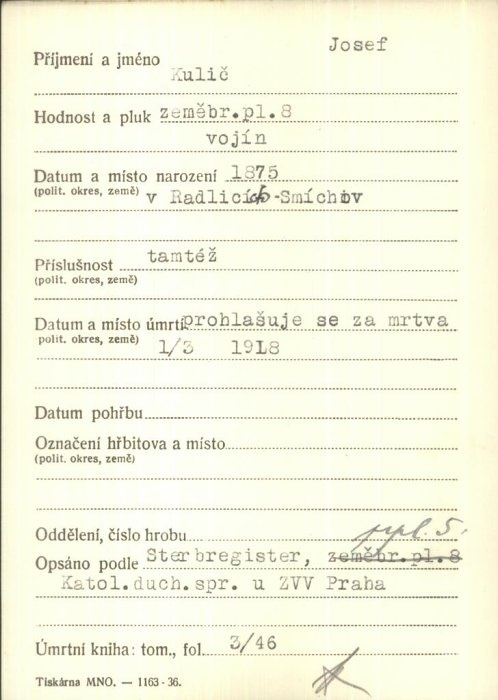 Josef
Příjmení a jméno
Kulič
Hodnost a pluk zeměbr.pl.8
vojín
Datum a místo narození 1875
(polit. okres, země) v Radlicích-Smíchov
Příslušnost tamtéž
(polit. okres, země)
Datum a místo úmrtí prohlašuje se za mrtva
polit. okres, země) 1/3 1918
Datum pohřbu
Označení hřbitova a místo
(polit. okres, země)
Oddělení, číslo hrobu
Opsáno podle Sterbregister, zeměbr.pl.8
Katol.duch.spr. u ZVV Praha
Úmrtní kniha: tom., fol. 3/46
Tiskárna MNO. — 1163 - 36.